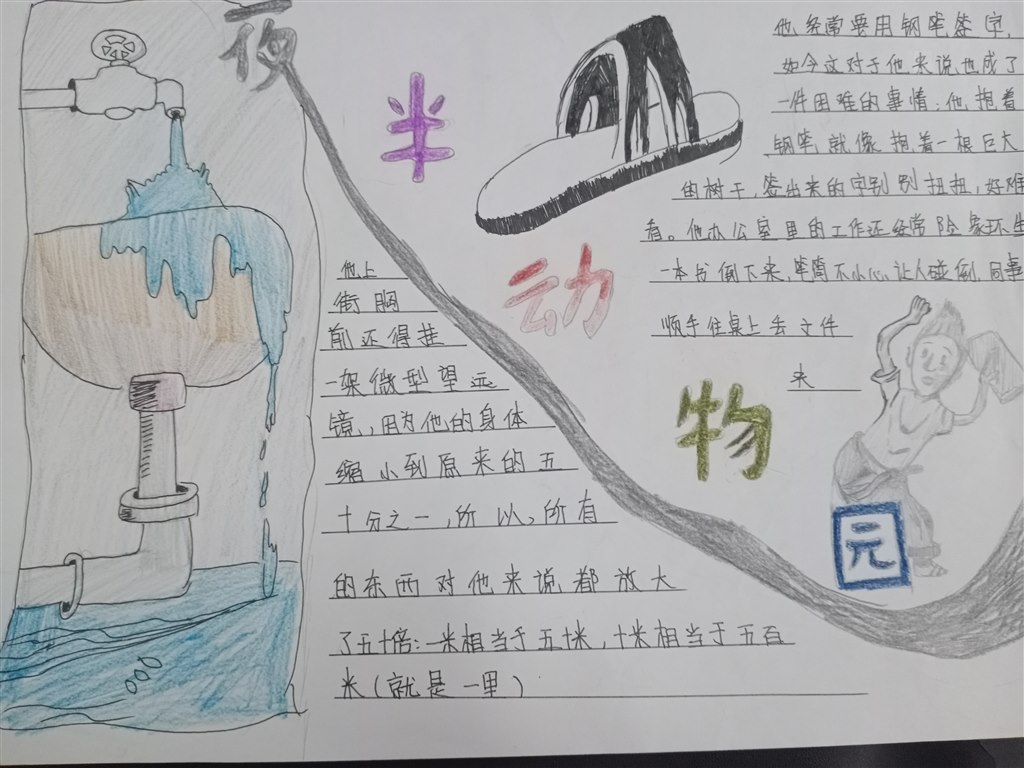 夜
半
动
物
园
他上
街胸
前还得挂
一架微型望远
镜,因为他的身体
缩小到原来的五
十分之一,所以,所有
的东西对他来说都放大
了五十倍:一米相当于五十米,十米相当于五百
米(就是一里)
他经常要用钢笔签字,
如今这对于他来说也成了
一件困难的事情:他抱着
钢笔就像抱着一根巨大
的树干,签出来的字别别扭扭,好难
看。他办公室里的工作还经常险象环生
一本书倒下来,笔筒不小心让人碰倒,同事
顺手往桌上丢文件
夹